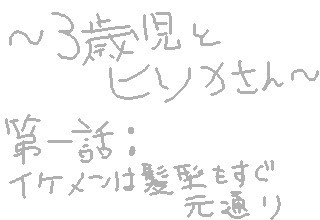 ～3歳児と
ヒソカさん～
第一話：
イケメンは髪型もすぐ
元通り